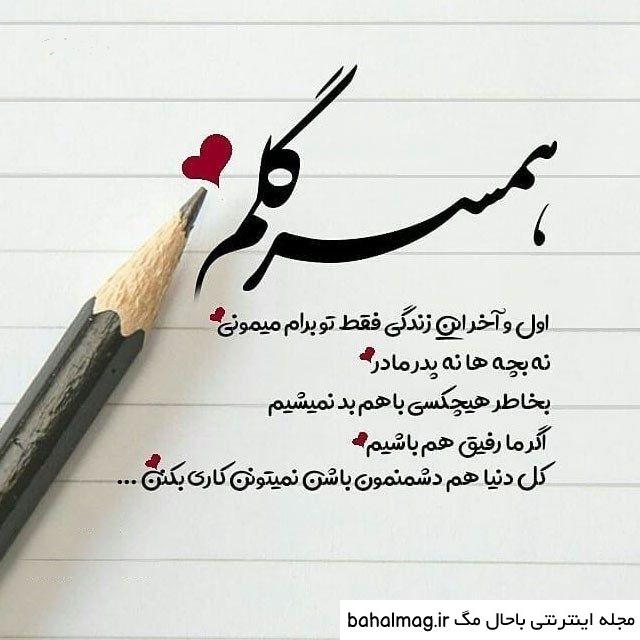 همسر گلم
اول و آخر این زندگی فقط تو برام میمونی
نه بچه ها نه پدر مادر
بخاطر هیچکسی باهم بد نمیشیم
اگر ما رفیق هم باشیم
کل دنیا هم دشمنمون باشن نمیتونن کاری بکنن ...
مجله اینترنتی باحال مگ bahalmag.ir